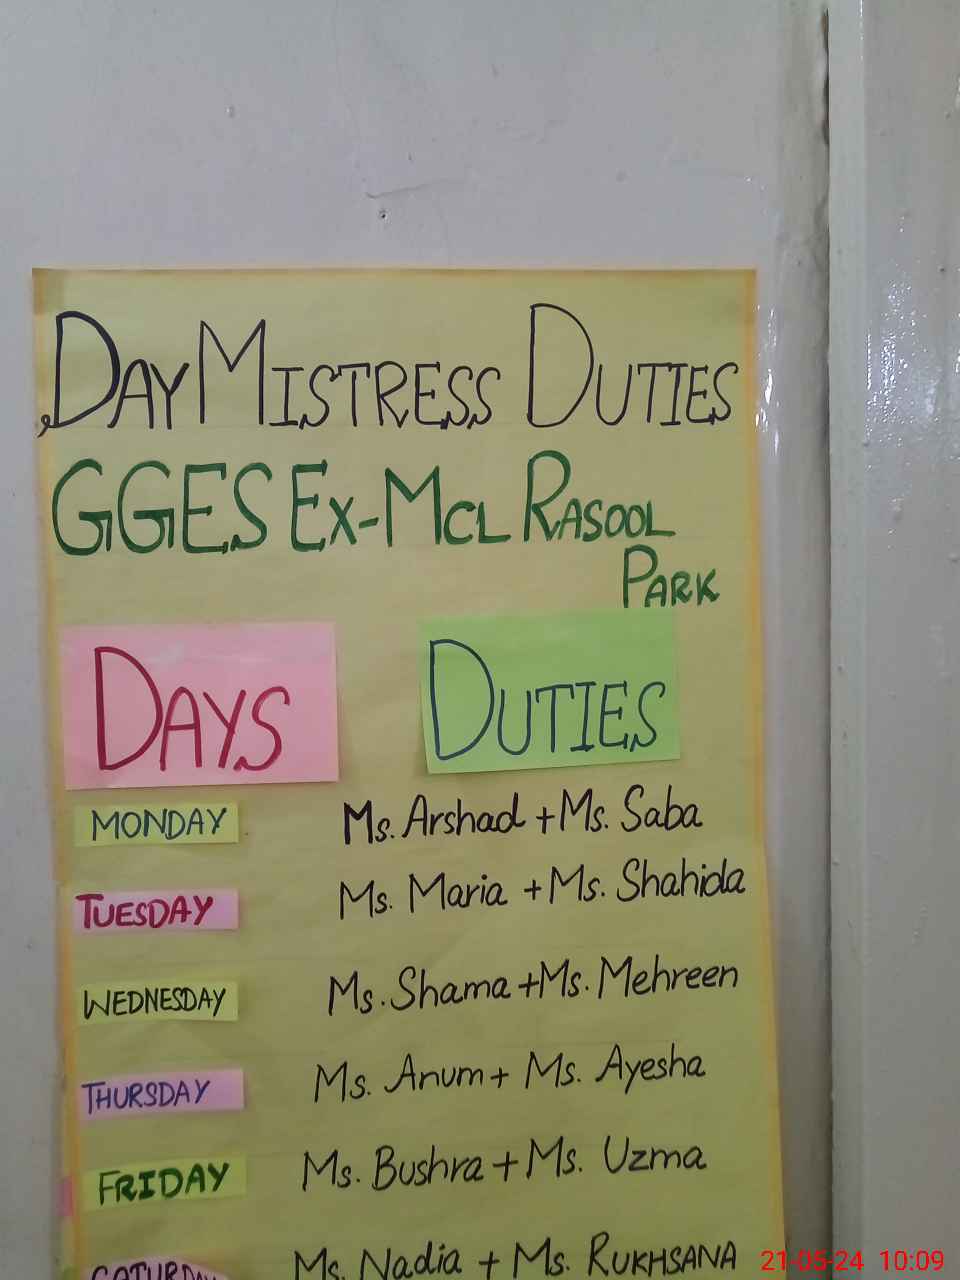 DAY MISTRESS DUTIES
GGES EX-MCL RASOOL
PARK
DAYS DUTIES
MONDAY Ms. Arshad + Ms. Saba
TUESDAY Ms. Maria + Ms. Shahida
WEDNESDAY Ms. Shama + Ms. Mehreen
THURSDAY Ms. Anum + Ms. Ayesha
FRIDAY Ms. Bushra + Ms. Uzma
SATURDAY Ms. Nadia + Ms. RUKHSANA
21-05-24 10:09